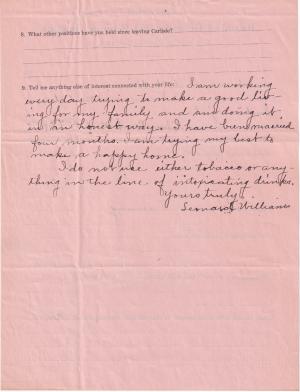 8. What other positions have you held since leaving Carlisle?
9. Tell me anything else of interest connected with your life: I am working
every day trying to make a good liv-
ing for my family and am doing it
in an honest way. I have been married
four months. I am trying my best to
make a happy home.
I do not use either tobacco or any-
thing in the line of intoxicating drinks.
Yours truly,
Leonard Williams